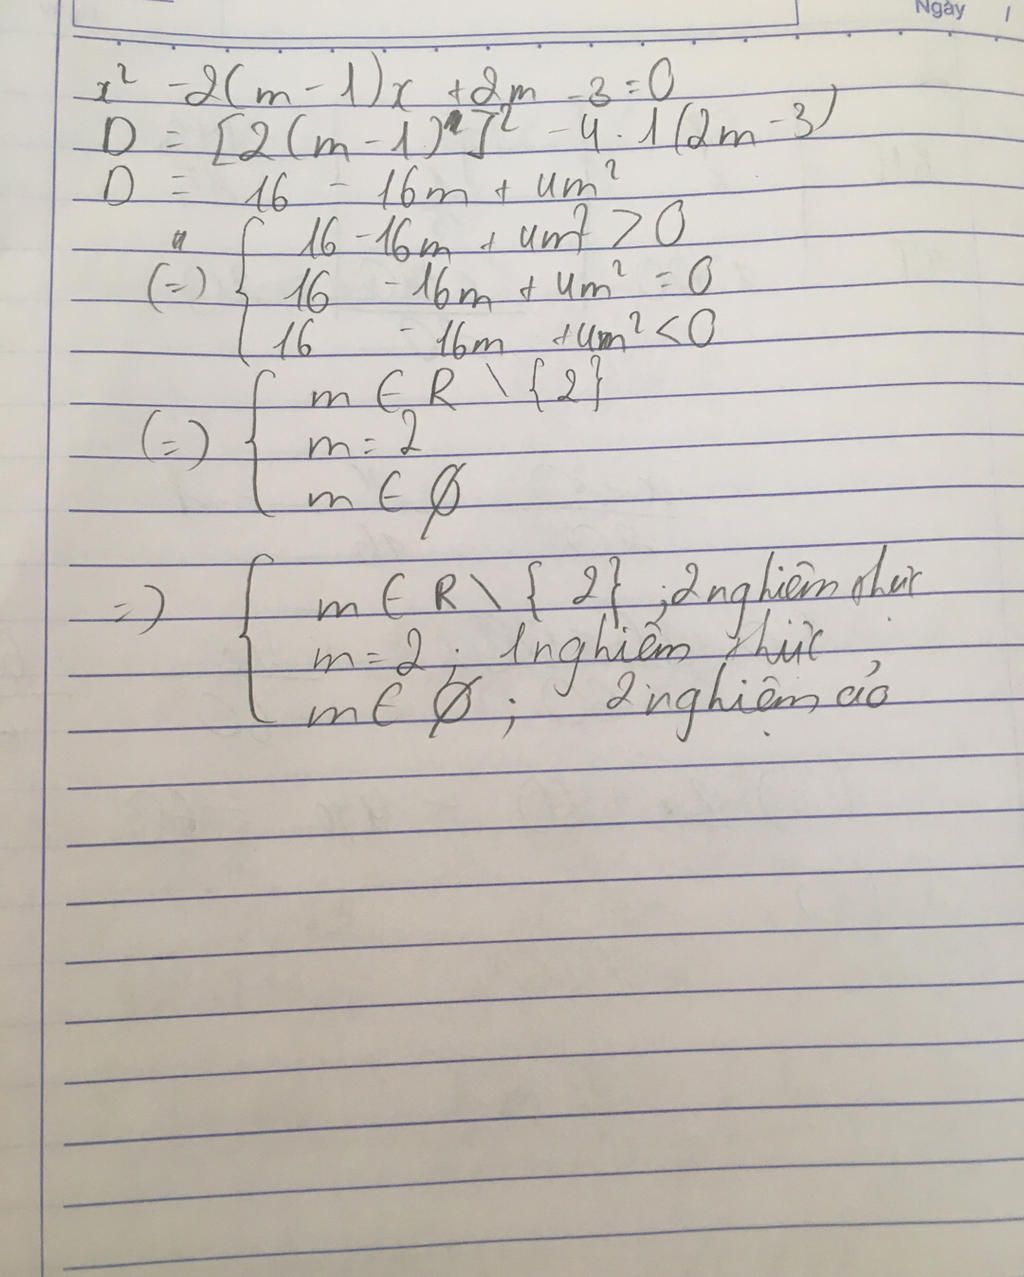 Ngày /
x² -2(m-1)x +2m -3=0
D = [2(m-1)]² -4.1(2m-3)
D = 16 - 16m + 4m²
(=) { 16 -16m + 4m² > 0
16 -16m + 4m² = 0
16 - 16m +4m² < 0
(=) { m ∈ R \ {2}
m = 2
m ∈ ∅
=) { m ∈ R \ {2} ; 2 nghiệm thực
m = 2 ; 1 nghiệm thực
m ∈ ∅ ; 2 nghiệm ảo